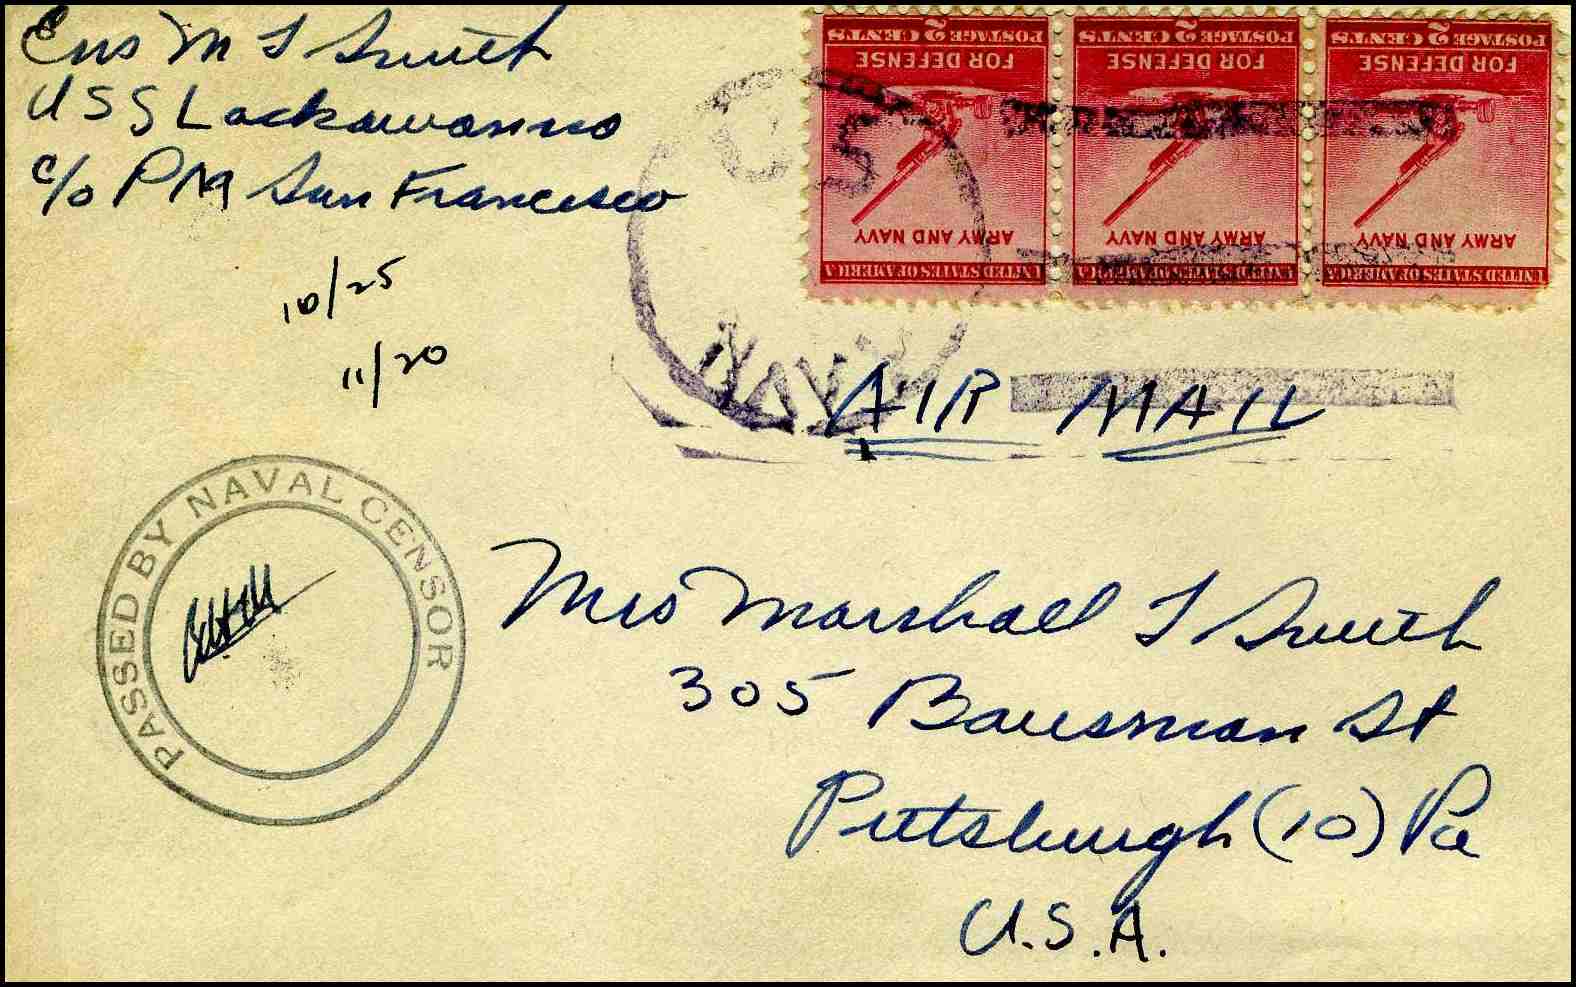 Ens M T Smith
USS Lackawanna
c/o PM San Francisco
10/25
11/20
POSTAGE 2 CENTS
FOR DEFENSE
ARMY AND NAVY
UNITED STATES OF AMERICA
POSTAGE 2 CENTS
FOR DEFENSE
ARMY AND NAVY
UNITED STATES OF AMERICA
POSTAGE 2 CENTS
FOR DEFENSE
ARMY AND NAVY
UNITED STATES OF AMERICA
U S
NAVY
AIR MAIL
PASSED BY NAVAL CENSOR
Mrs Marshall T Smith
305 Bausman St
Pittsburgh (10) Pa
U.S.A.